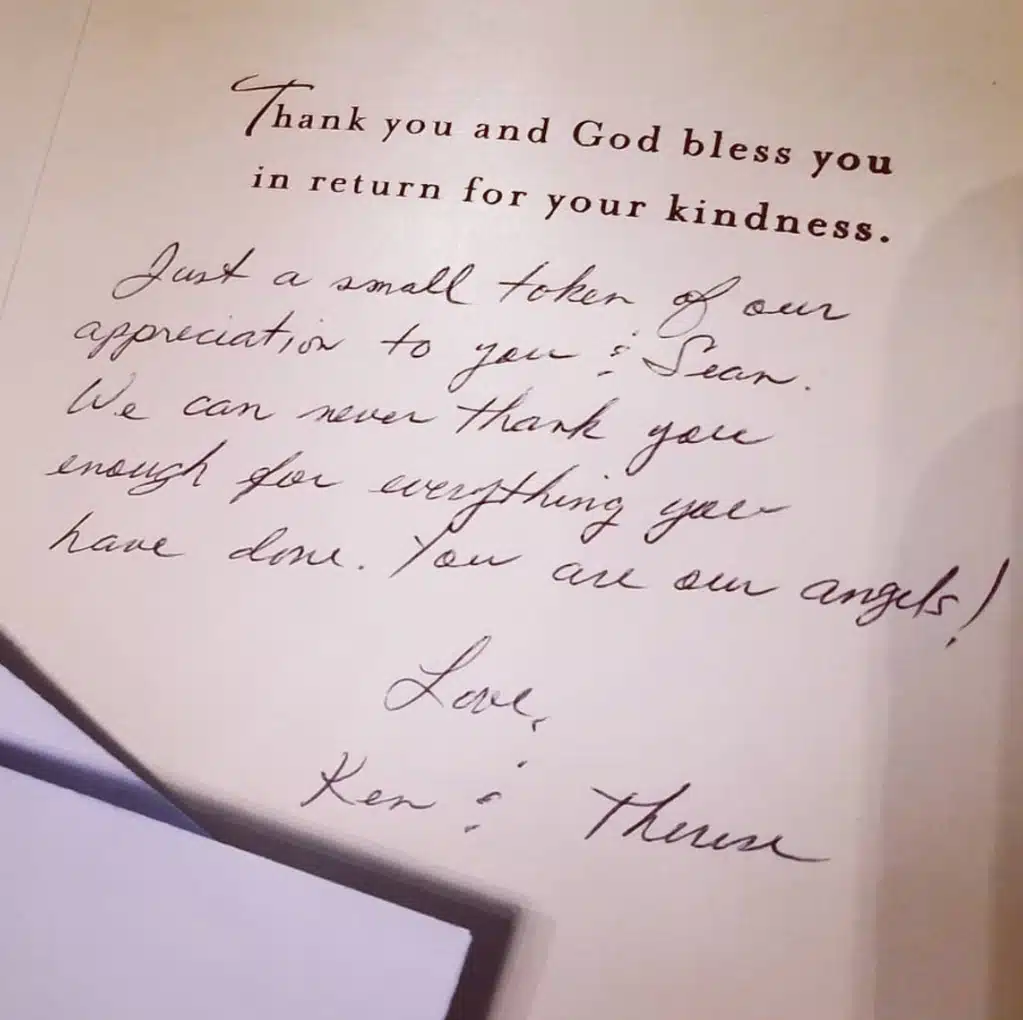 Thank you and God bless you
in return for your kindness.
Just a small token of our
appreciation to you & Sean.
We can never thank you
enough for everything you
have done. You are our angels!
Love,
Ken & Therese